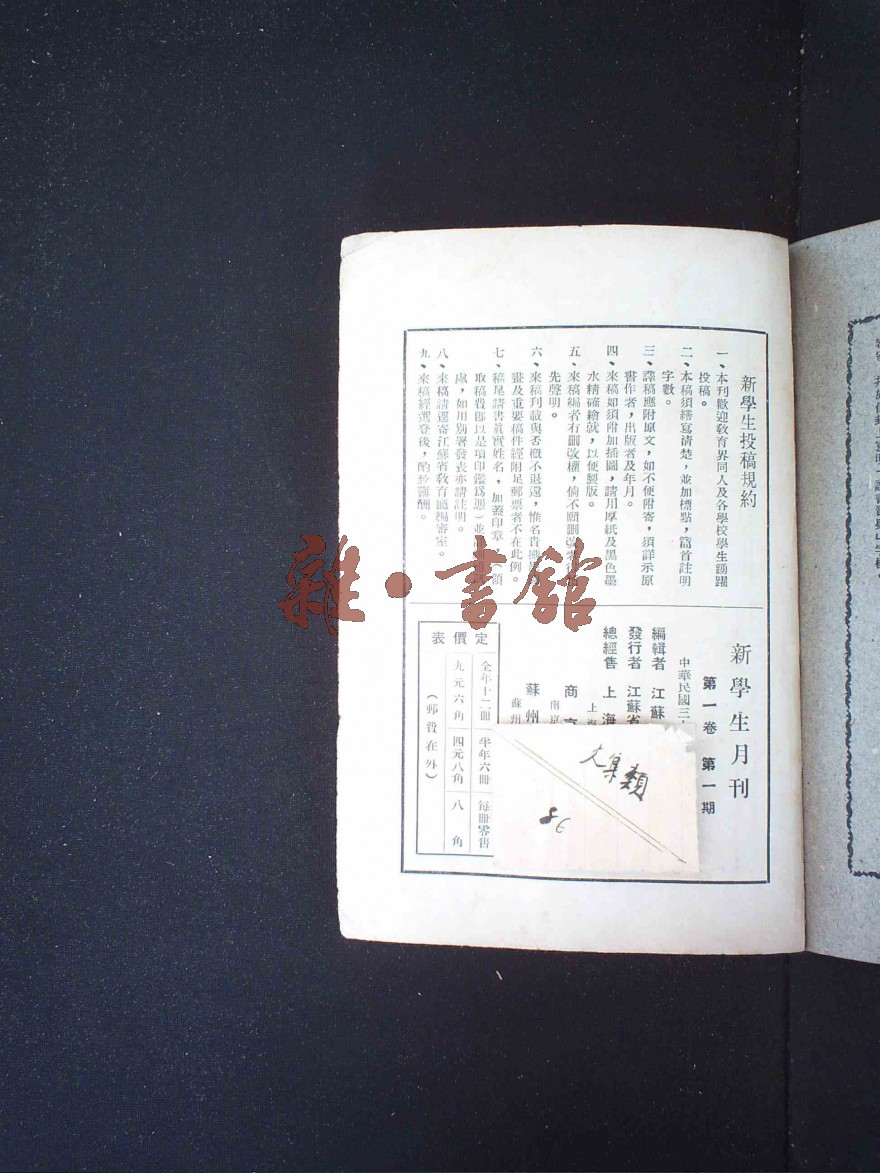 新學生投稿規約
一、本刊歡迎教育界同人及各學校學生踴躍
投稿。
二、本稿須繕寫清楚，並加標點，篇首註明
字數。
三、譯稿應附原文，如不便附寄，須詳示原
書作者，出版者及年月。
四、來稿如須附加插圖，請用厚紙及黑色墨
水精確繪就，以便製版。
五、來稿編者有刪改權，倘不願刪改者
先聲明。
六、來稿刊載與否概不退還，惟名貴
畫及重要稿件經附足郵票者不在此例。
七、稿尾請書真實姓名，加蓋印章（領
取稿費卽以是項印鑑爲憑）並
處，如用別署發表亦請註明。
八、來稿請逕寄江蘇省教育廳編審室。
九、來稿經選登後，酌致薄酬。
新學生月刊
第一卷 第一期
中華民國三十
編輯者 江蘇
發行者 江蘇省
總經售 上海
上海
商
南京
蘇州
蘇州
定價表
全年十二冊 半年六冊 每冊零售
九元六角 四元八角 八角
（郵費在外）
大集類
86
雜·書館